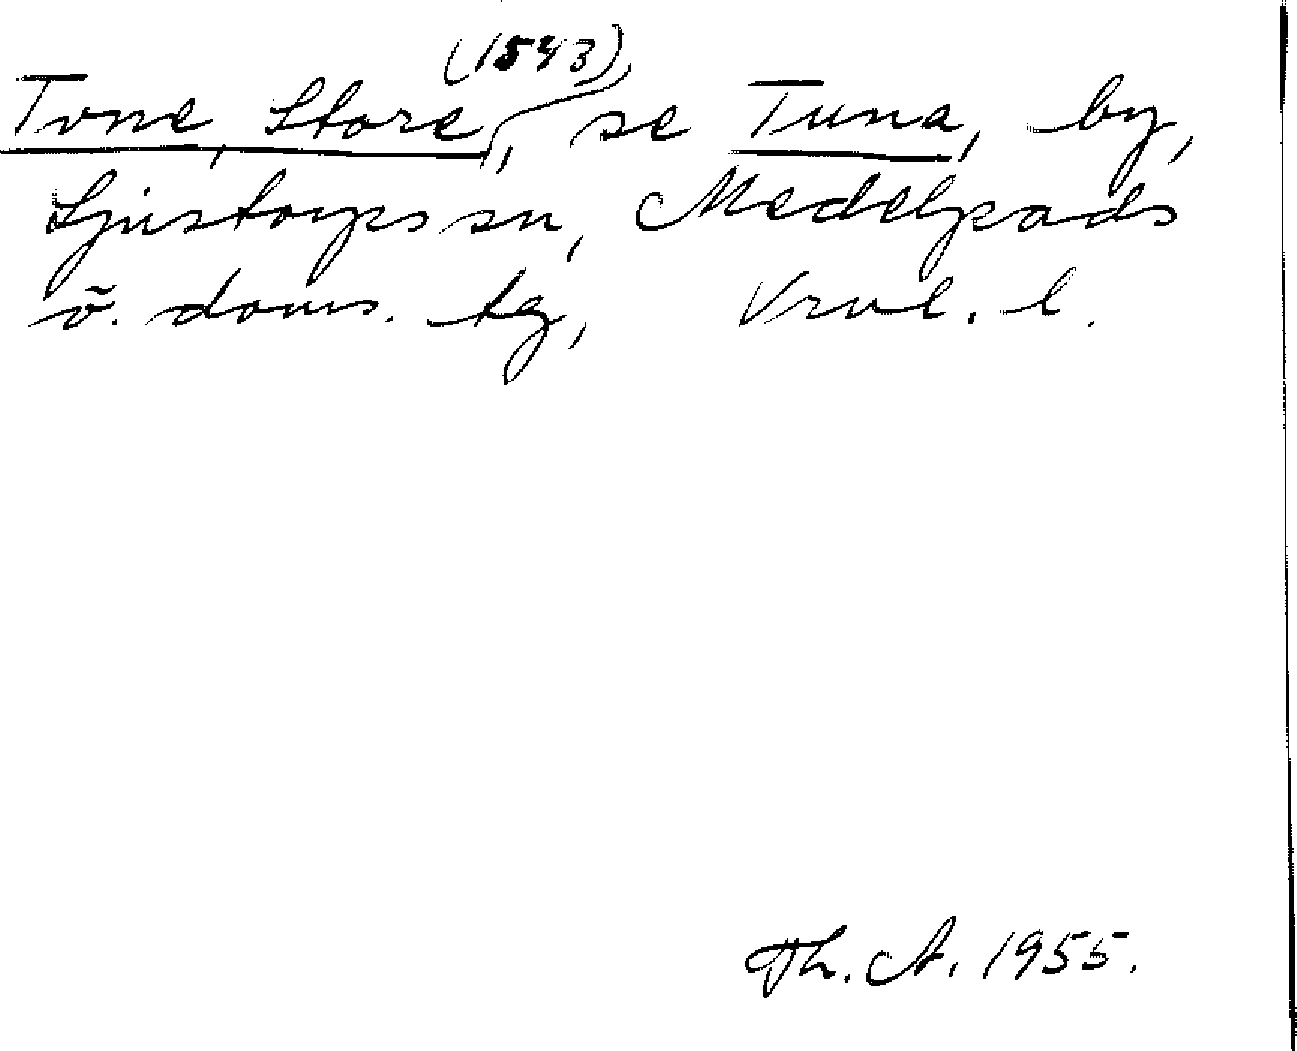 Tvne, Store (1543), se Tuna, by,
Ljustorps sn, Medelpads
ö. doms. tg, Vrnl. l.
Th. A. 1955.